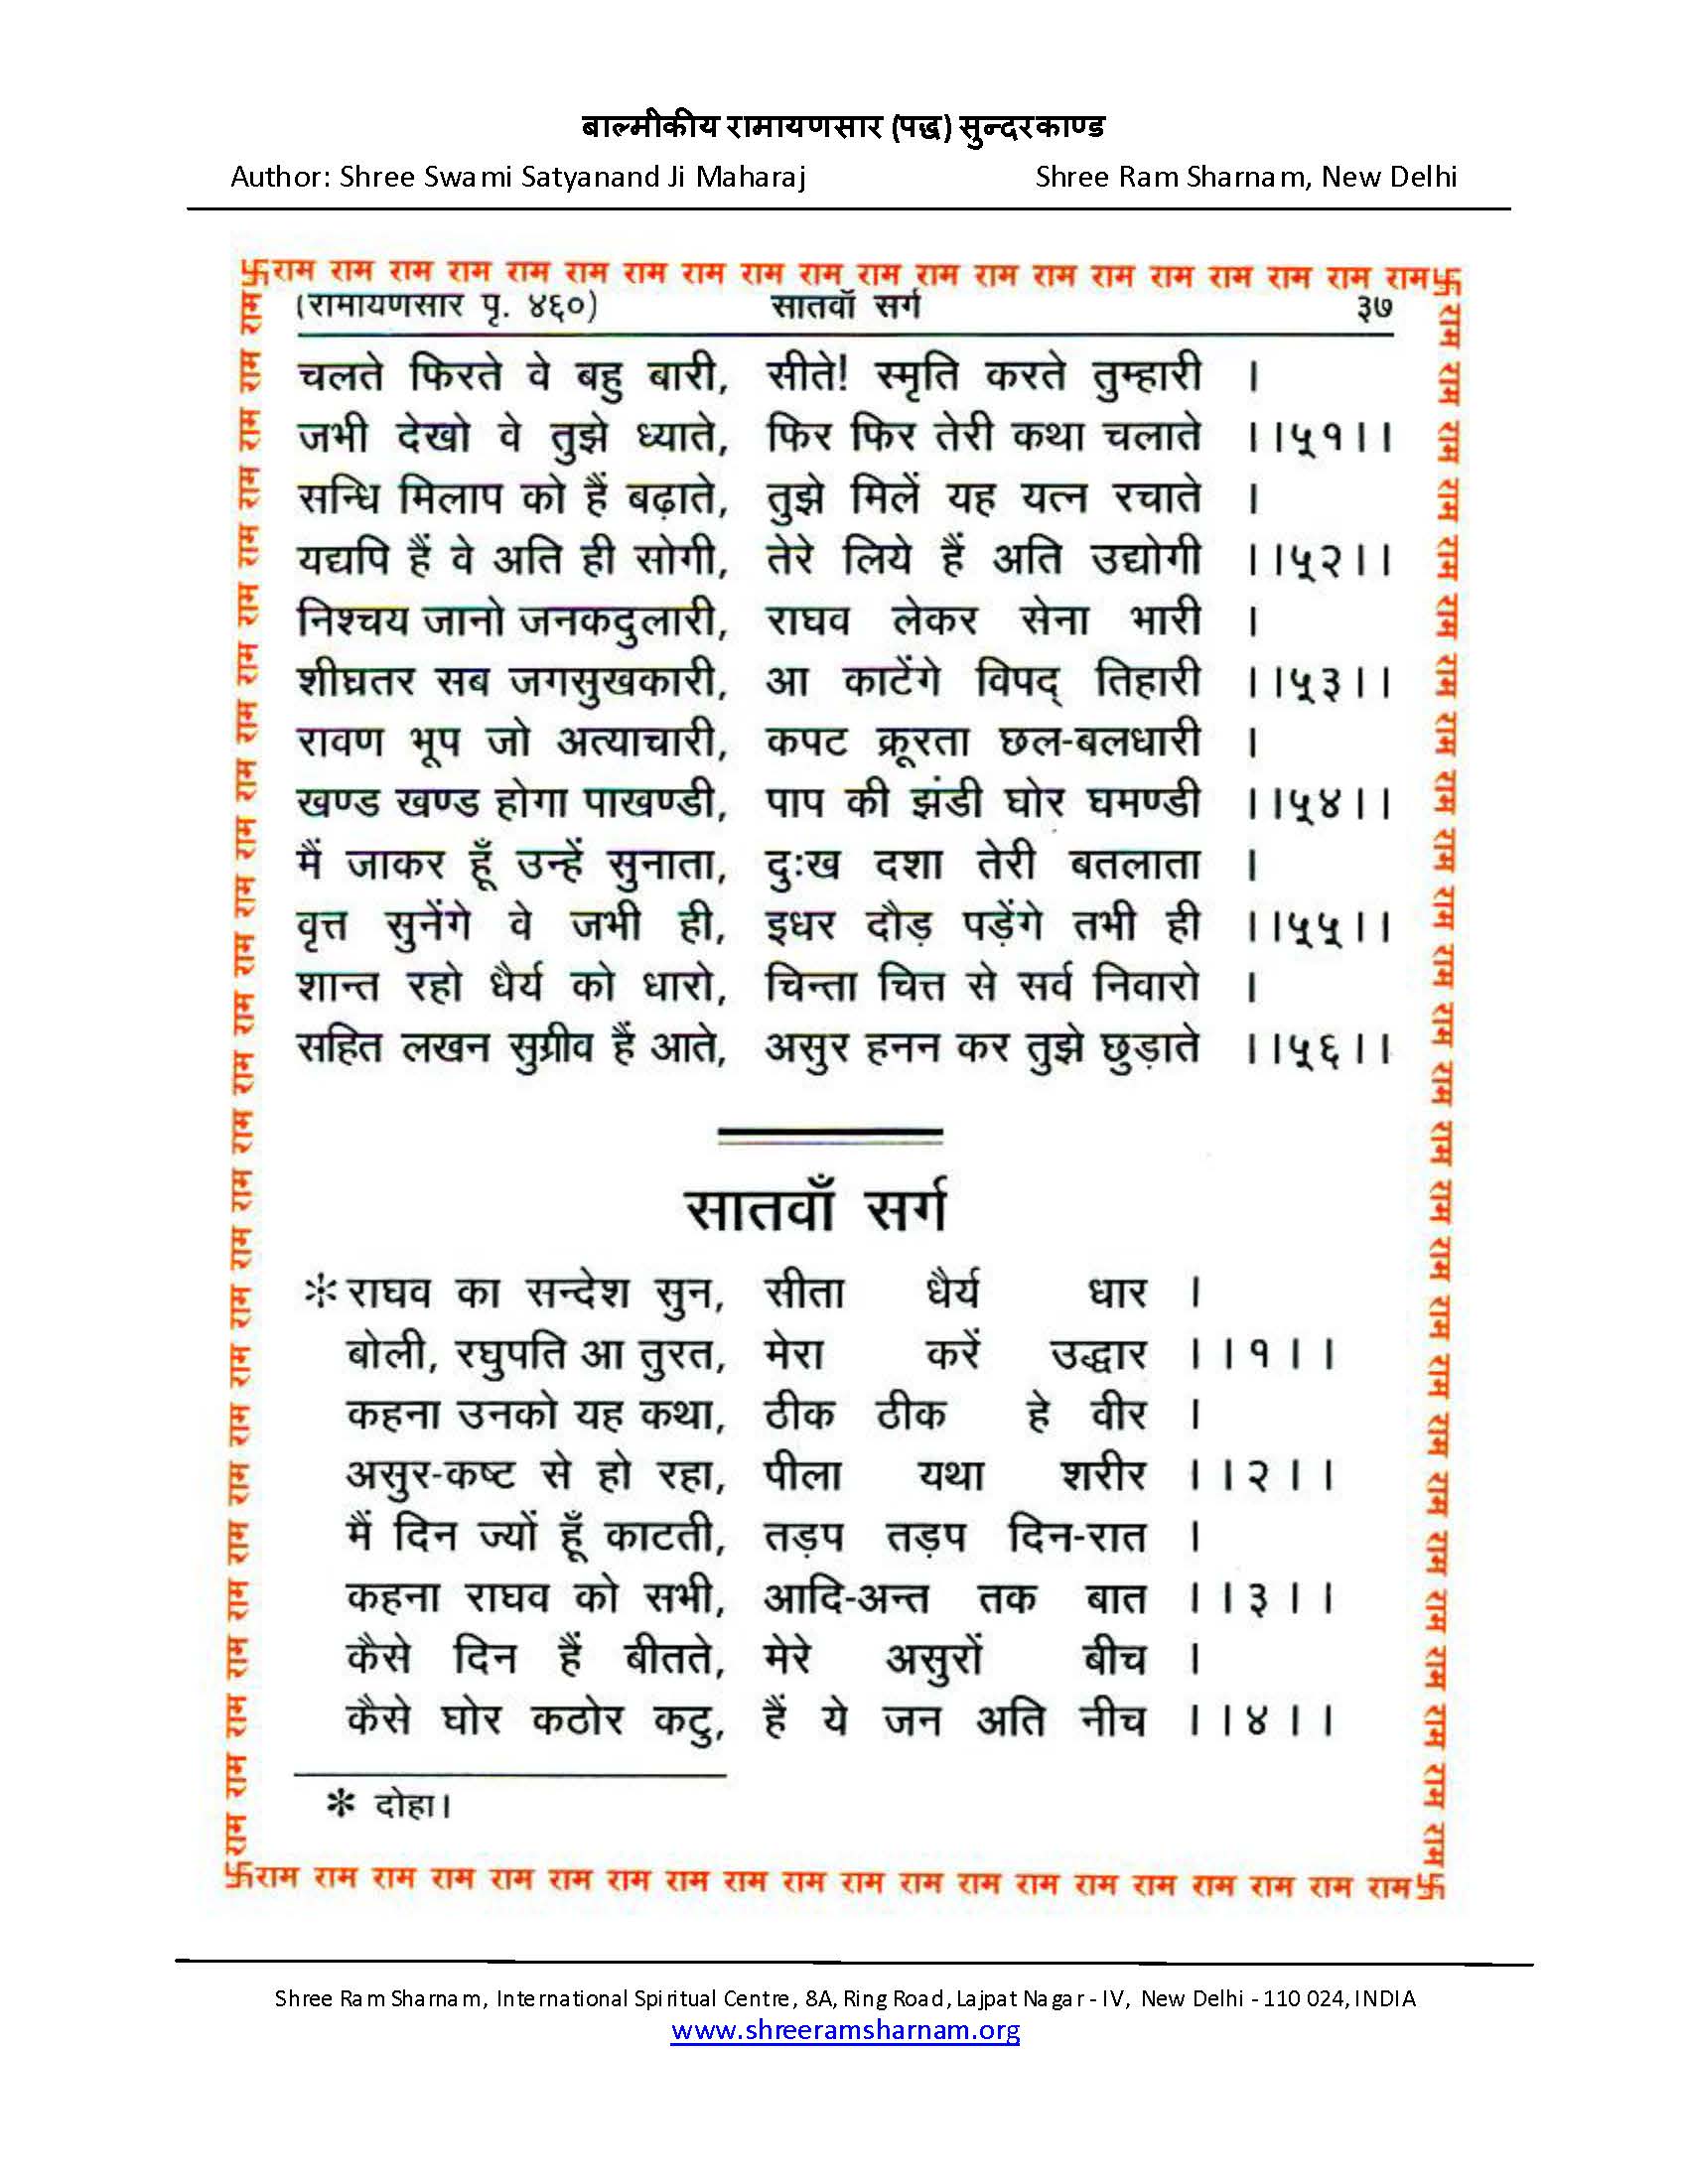 बाल्मीकीय रामायणसार (पद्ध) सुन्दरकाण्ड
Author: Shree Swami Satyanand Ji Maharaj Shree Ram Sharnam, New Delhi
卐राम राम राम राम राम राम राम राम राम राम राम राम राम राम राम राम राम राम राम राम卐
(रामायणसार पृ. ४६०) सातवाँ सर्ग ३७
चलते फिरते वे बहु बारी, सीते! स्मृति करते तुम्हारी ।
जभी देखो वे तुझे ध्याते, फिर फिर तेरी कथा चलाते ।।५१।।
सन्धि मिलाप को हैं बढ़ाते, तुझे मिलें यह यत्न रचाते ।
यद्यपि हैं वे अति ही सोगी, तेरे लिये हैं अति उद्योगी ।।५२।।
निश्चय जानो जनकदुलारी, राघव लेकर सेना भारी ।
शीघ्रतर सब जगसुखकारी, आ काटेंगे विपद् तिहारी ।।५३।।
रावण भूप जो अत्याचारी, कपट क्रूरता छल-बलधारी ।
खण्ड खण्ड होगा पाखण्डी, पाप की झंडी घोर घमण्डी ।।५४।।
मैं जाकर हूँ उन्हें सुनाता, दुःख दशा तेरी बतलाता ।
वृत्त सुनेंगे वे जभी ही, इधर दौड़ पड़ेंगे तभी ही ।।५५।।
शान्त रहो धैर्य को धारो, चिन्ता चित्त से सर्व निवारो ।
सहित लखन सुग्रीव हैं आते, असुर हनन कर तुझे छुड़ाते ।।५६।।
सातवाँ सर्ग
*राघव का सन्देश सुन, सीता धैर्य धार ।
बोली, रघुपति आ तुरत, मेरा करें उद्धार ।।१।।
कहना उनको यह कथा, ठीक ठीक हे वीर ।
असुर-कष्ट से हो रहा, पीला यथा शरीर ।।२।।
मैं दिन ज्यों हूँ काटती, तड़प तड़प दिन-रात ।
कहना राघव को सभी, आदि-अन्त तक बात ।।३।।
कैसे दिन हैं बीतते, मेरे असुरों बीच ।
कैसे घोर कठोर कटु, हैं ये जन अति नीच ।।४।।
* दोहा।
卐राम राम राम राम राम राम राम राम राम राम राम राम राम राम राम राम राम राम राम राम卐
Shree Ram Sharnam, International Spiritual Centre, 8A, Ring Road, Lajpat Nagar - IV, New Delhi - 110 024, INDIA
www.shreeramsharnam.org